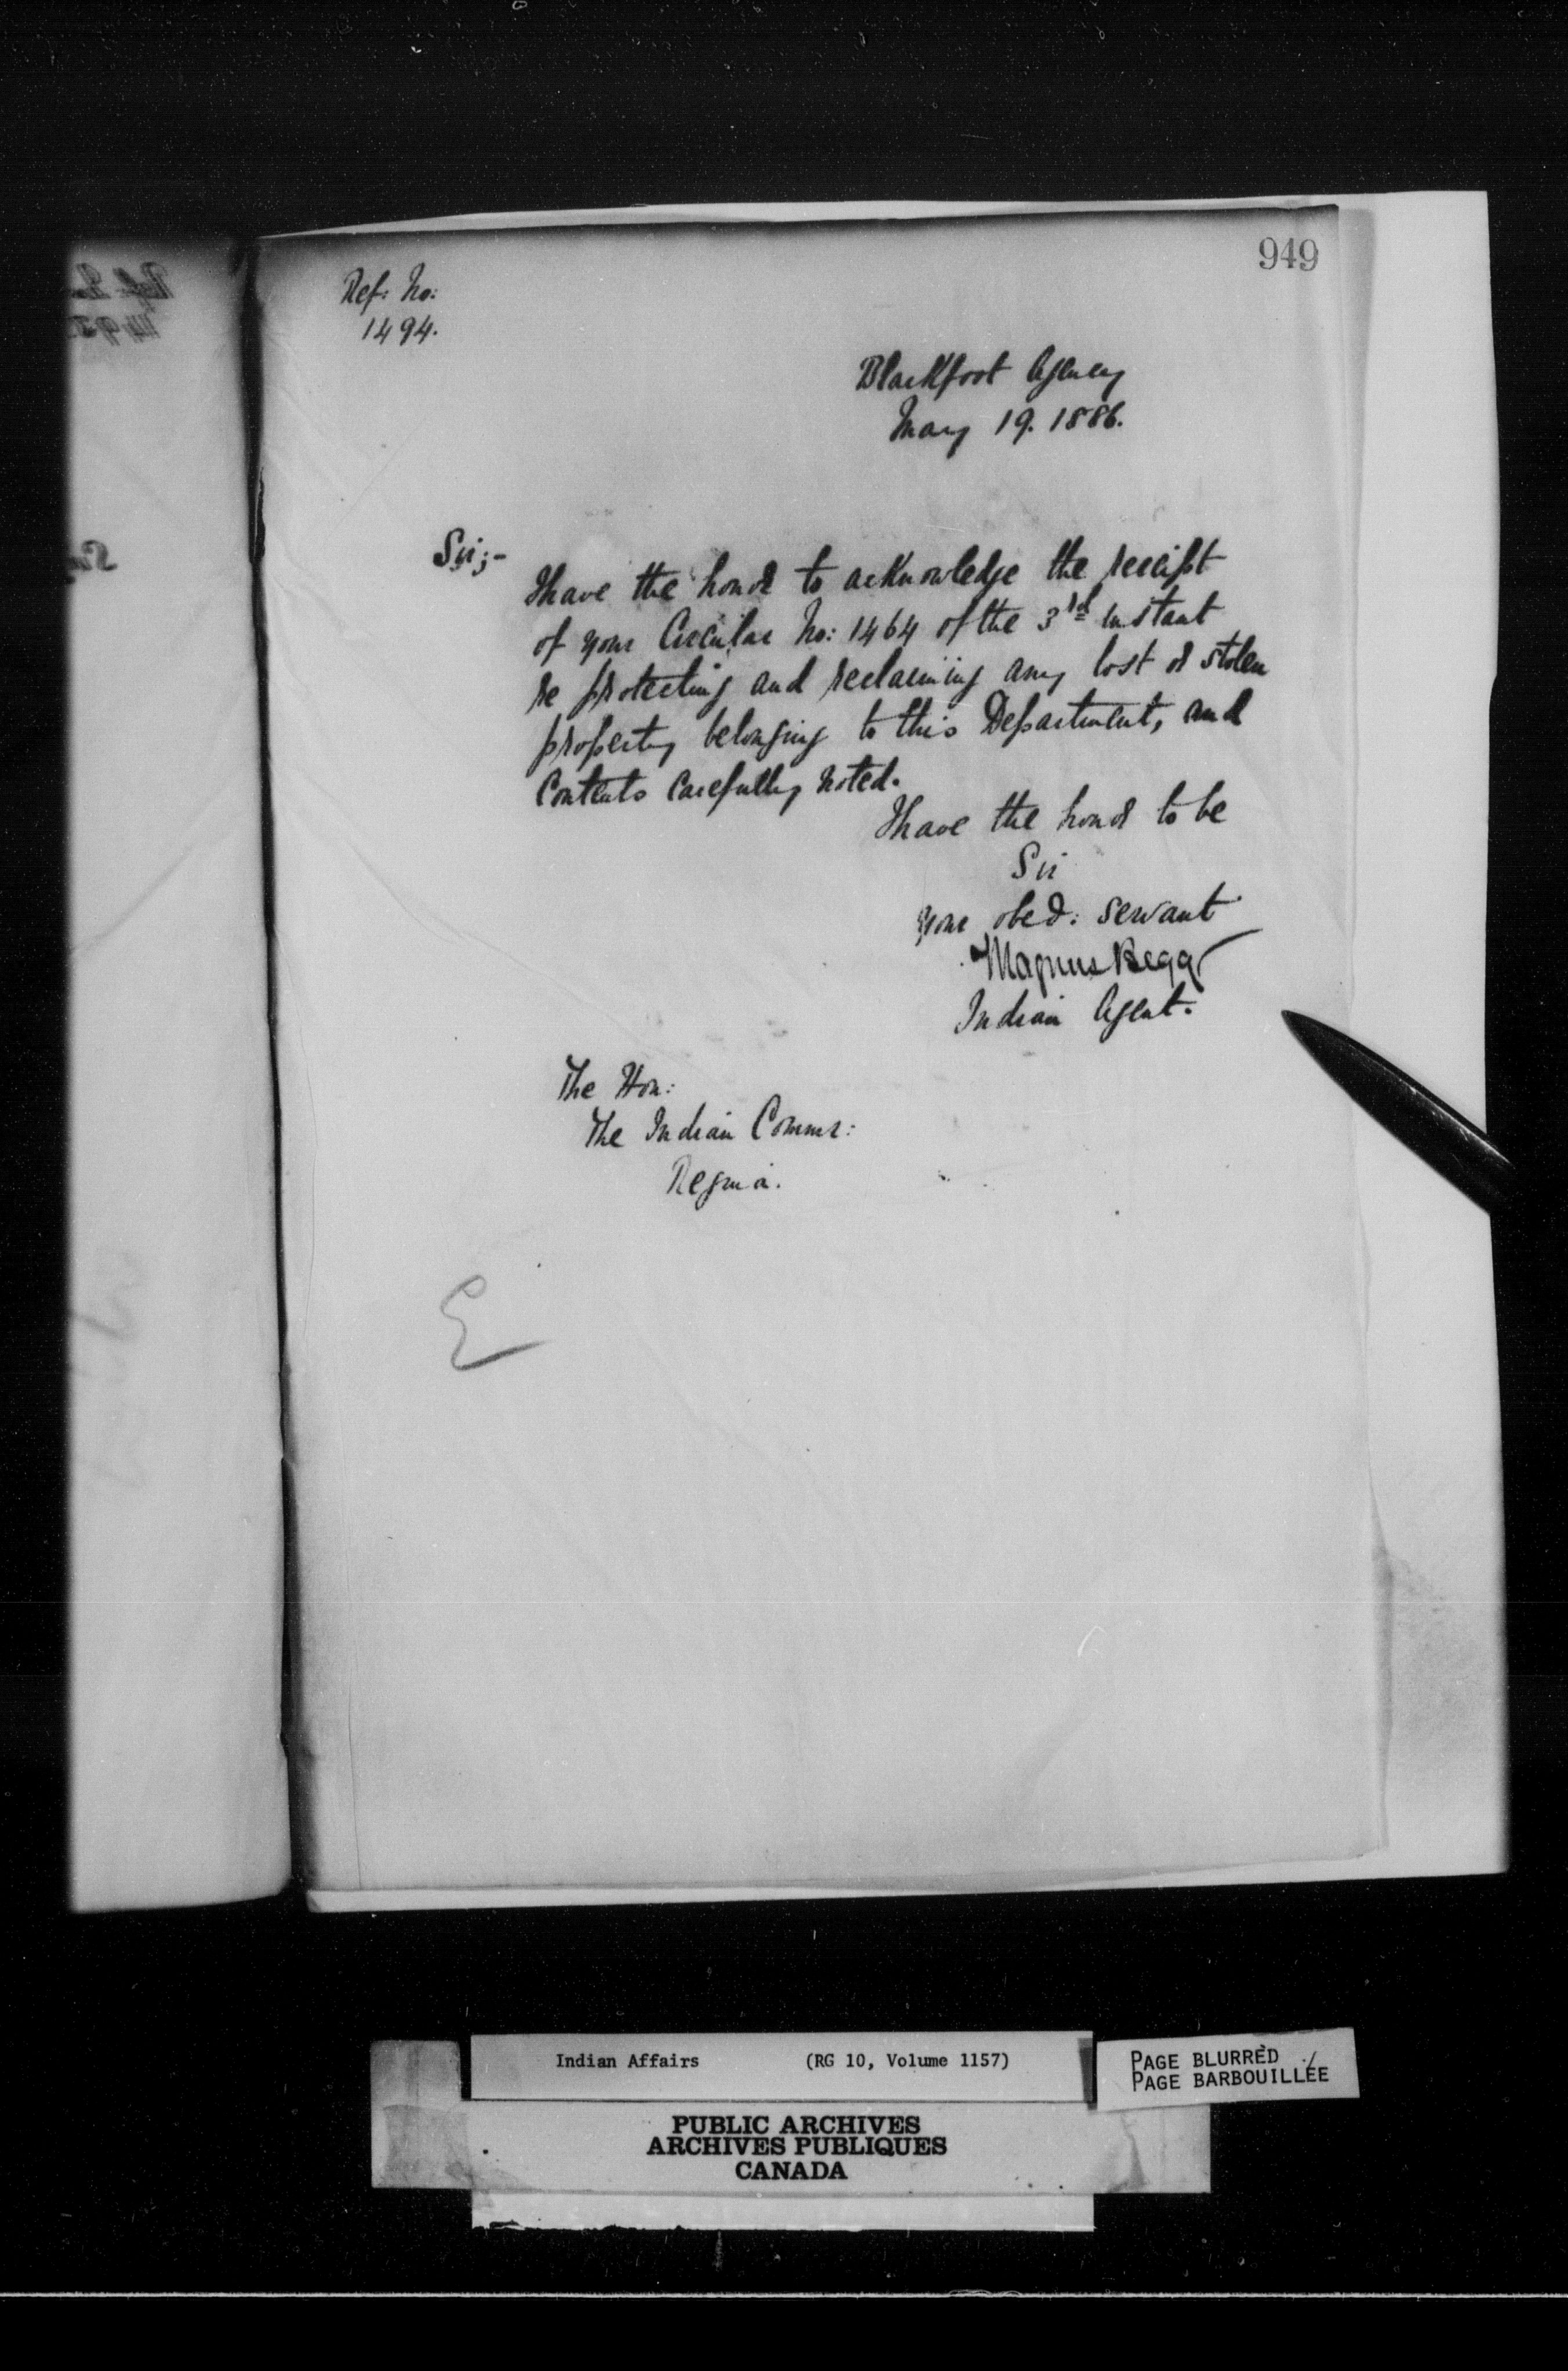 949
Ref: No:
1494.
Blackfoot Agency
May 19. 1886.
Sir;-
I have the honor to acknowledge the receipt
of your Circular No: 1464 of the 3rd instant
re protecting and reclaiming any lost or stolen
property belonging to this Department, and
Contents Carefully noted.
I have the honor to be
Sir
Your obed: servant
Magnus Begg
Indian Agent.
The Hon:
The Indian Commr:
Regina.
E
Indian Affairs (RG 10, Volume 1157)
PAGE BLURRED
PAGE BARBOUILLÉE
PUBLIC ARCHIVES
ARCHIVES PUBLIQUES
CANADA